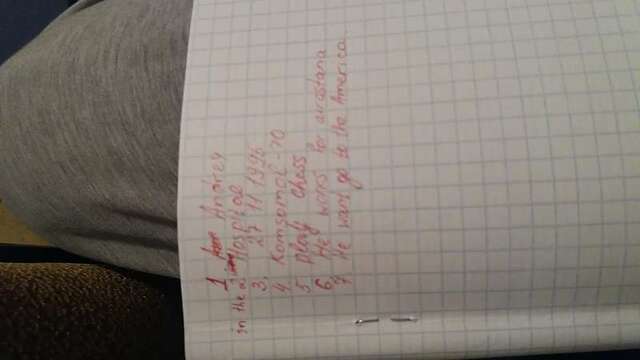 1 Andrea
in the 2. Hospital
3. 27 11 1996
4. Komsomol -70
5 play chess
6. He works for airastana
7. He want go to the America.